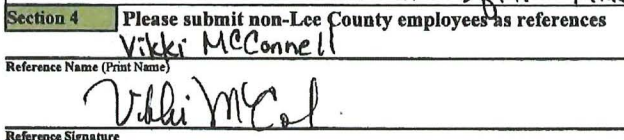 Section 4 Please submit non-Lee County employees as references
Vikki McConnell
Reference Name (Print Name)
Reference Signature